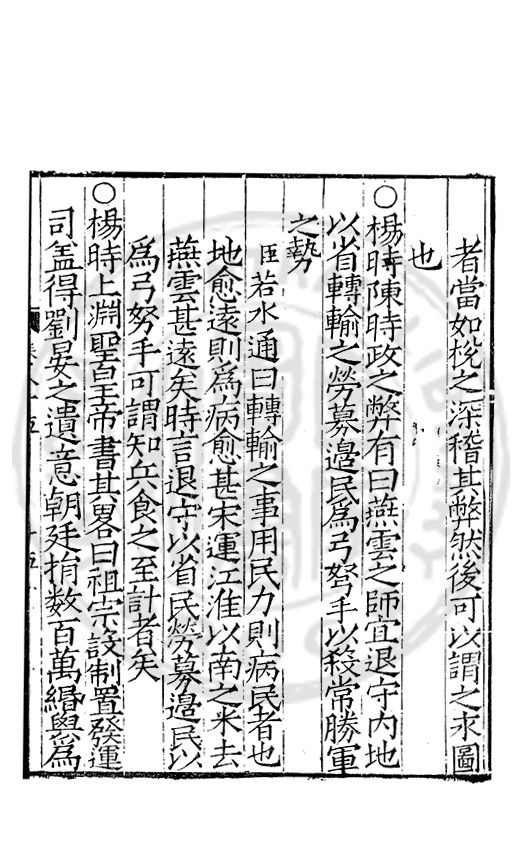 者當如梲之深稽其弊然後可以謂之永圖
也
○楊時陳時政之弊有曰燕雲之師宜退守内地
以省轉輸之勞募邉民爲弓弩手以殺常勝軍
之勢
臣若水通曰轉輸之事用民力則病民者也
地愈遠則爲病愈甚宋運江淮以南之米去
燕雲甚遠矣時言退守以省民勞募邉民以
爲弓弩手可謂知兵食之至計者矣
○楊時上淵聖皇帝書其畧曰祖宗設制置發運
司盖得劉晏之遺意朝廷捐数百萬緡與爲